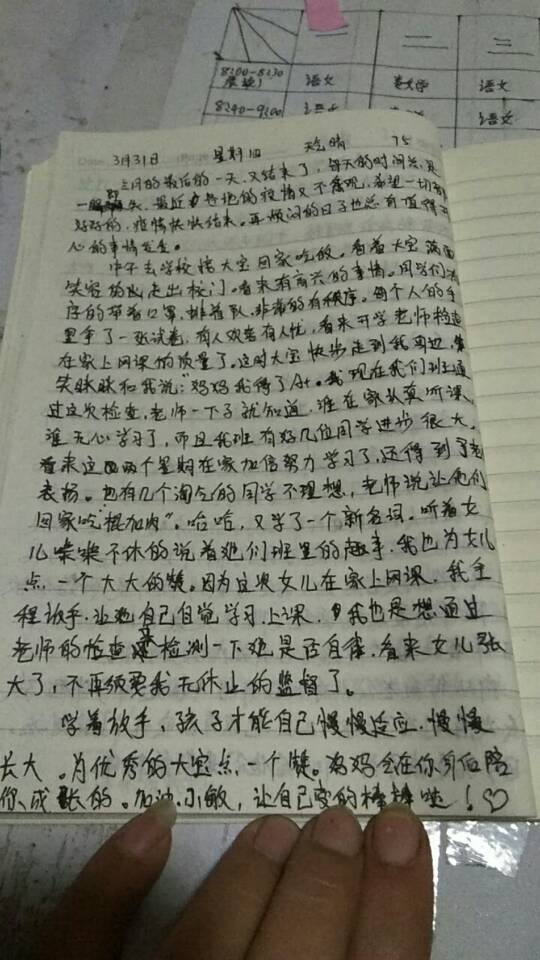 一 二 三
8:00-8:30
晨读 语文 数学 语文
8:40-9:20 语文 语文
3月31日 星期四 天气晴 75
三月的最后的一天,又结束了,每天的时间总是
一晃而失,最近各地的疫情又不乐观,希望一切都
好好的,疫情快快结束。再烦闷的日子也总有值得开
心的事情发生。
中午去学校接大宝回家吃饭。看着大宝满面
笑容的走出校门。看来有高兴的事情。同学们有
序的带着口罩,排着队,非常的有秩序。每个人的手
里拿了一张试卷,有人欢喜有人忧,看来开学老师检查
在家上网课的质量了。这时大宝快步走到我身边,
笑眯眯和我说:"妈妈我得了A+。我现在我们班通
过这次检查,老师一下子就知道,谁在家认真听课,
谁无心学习了,而且我班有好几位同学进步很大,
看来这两个星期在家加倍努力学习了,还得到了老
表扬。也有几个淘气的同学不理想,老师说让他们
回家吃"棍加肉"。哈哈,又学了一个新名词。听着女
儿喋喋不休的说着她们班里的趣事,我也为女儿
点,一个大大的赞。因为这次女儿在家上网课,我全
程放手,让她自己自觉学习,上课,我也是想通过
老师的检查来检测一下她是否自律,看来女儿长
大了,不再须要我无休止的监督了。
学着放手,孩子才能自己慢慢适应,慢慢
长大。为优秀的大宝点,一个赞。妈妈会在你身后陪
你成长的。加油小敏,让自己变的棒棒哒!♡